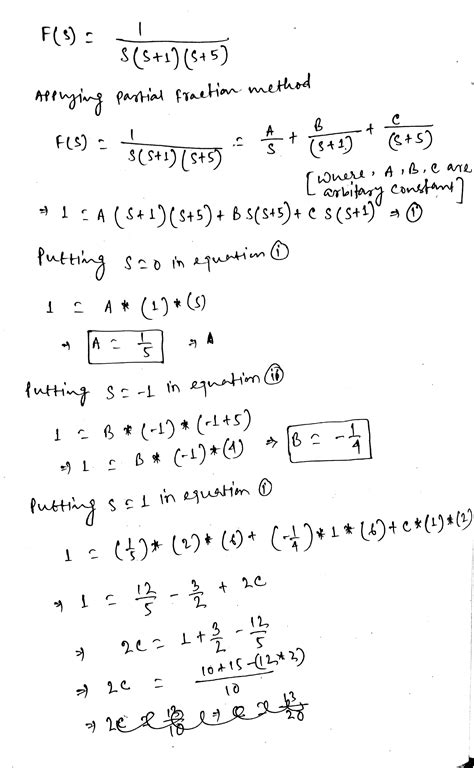 F(s) = 1 / S(S+1)(S+5)
Applying partial fraction method
F(s) = 1 / S(S+1)(S+5) = A/S + B/(S+1) + C/(S+5)
[where, A, B, C are
arbitary constant]
⇒ 1 = A(S+1)(S+5) + BS(S+5) + CS(S+1) ⇒ ①
Putting S=0 in equation ①
1 = A * (1) * (5)
⇒ A = 1/5 ⇒ A
Putting S=-1 in equation ⓘⓘ
1 = B * (-1) * (-1+5)
⇒ 1 = B * (-1) * (4) ⇒ B = -1/4
Putting S=1 in equation ①
1 = (1/5) * (2) * (6) + (-1/4) * 1 * (6) + C * (1) * (2)
⇒ 1 = 12/5 - 3/2 + 2C
⇒ 2C = 1 + 3/2 - 12/5
⇒ 2C = 10+15-(12*2) / 10